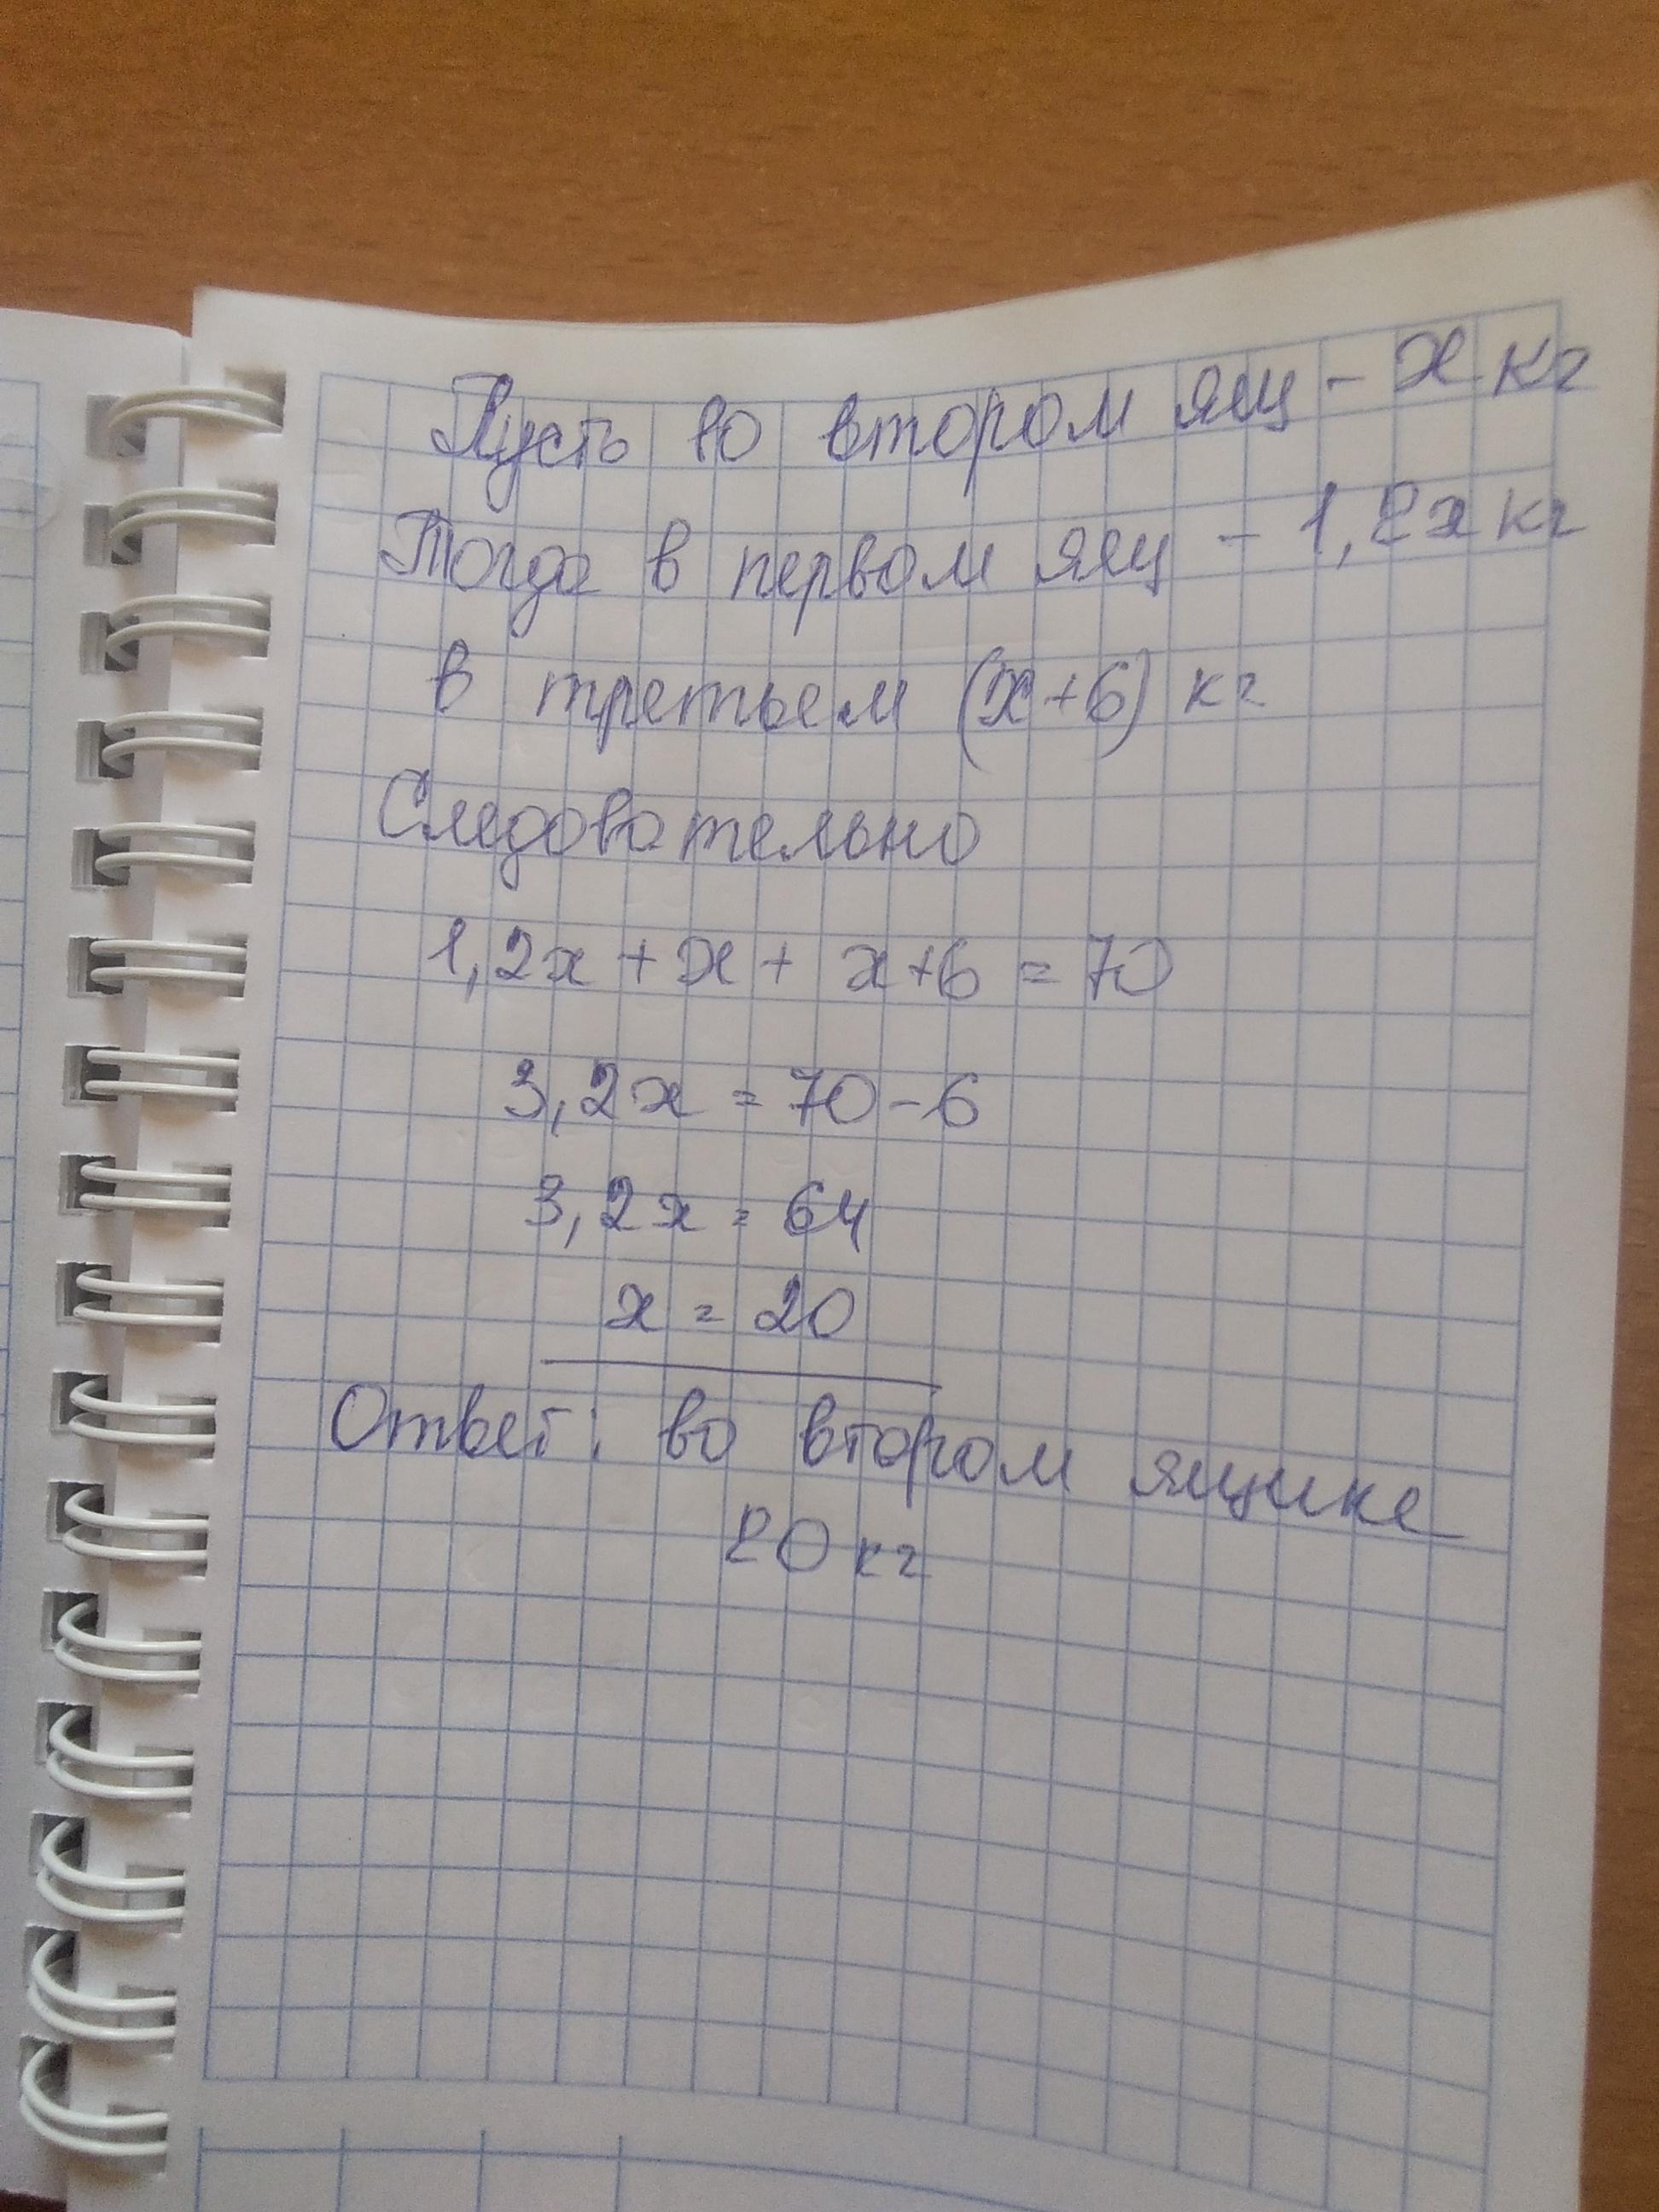 Пусть во втором ящ - x кг
Тогда в первом ящ - 1,2x кг
в третьем (x+6) кг
Следовательно
1,2x + x + x+6 = 70
3,2x = 70-6
3,2x = 64
x = 20
Ответ: во втором ящике
20 кг